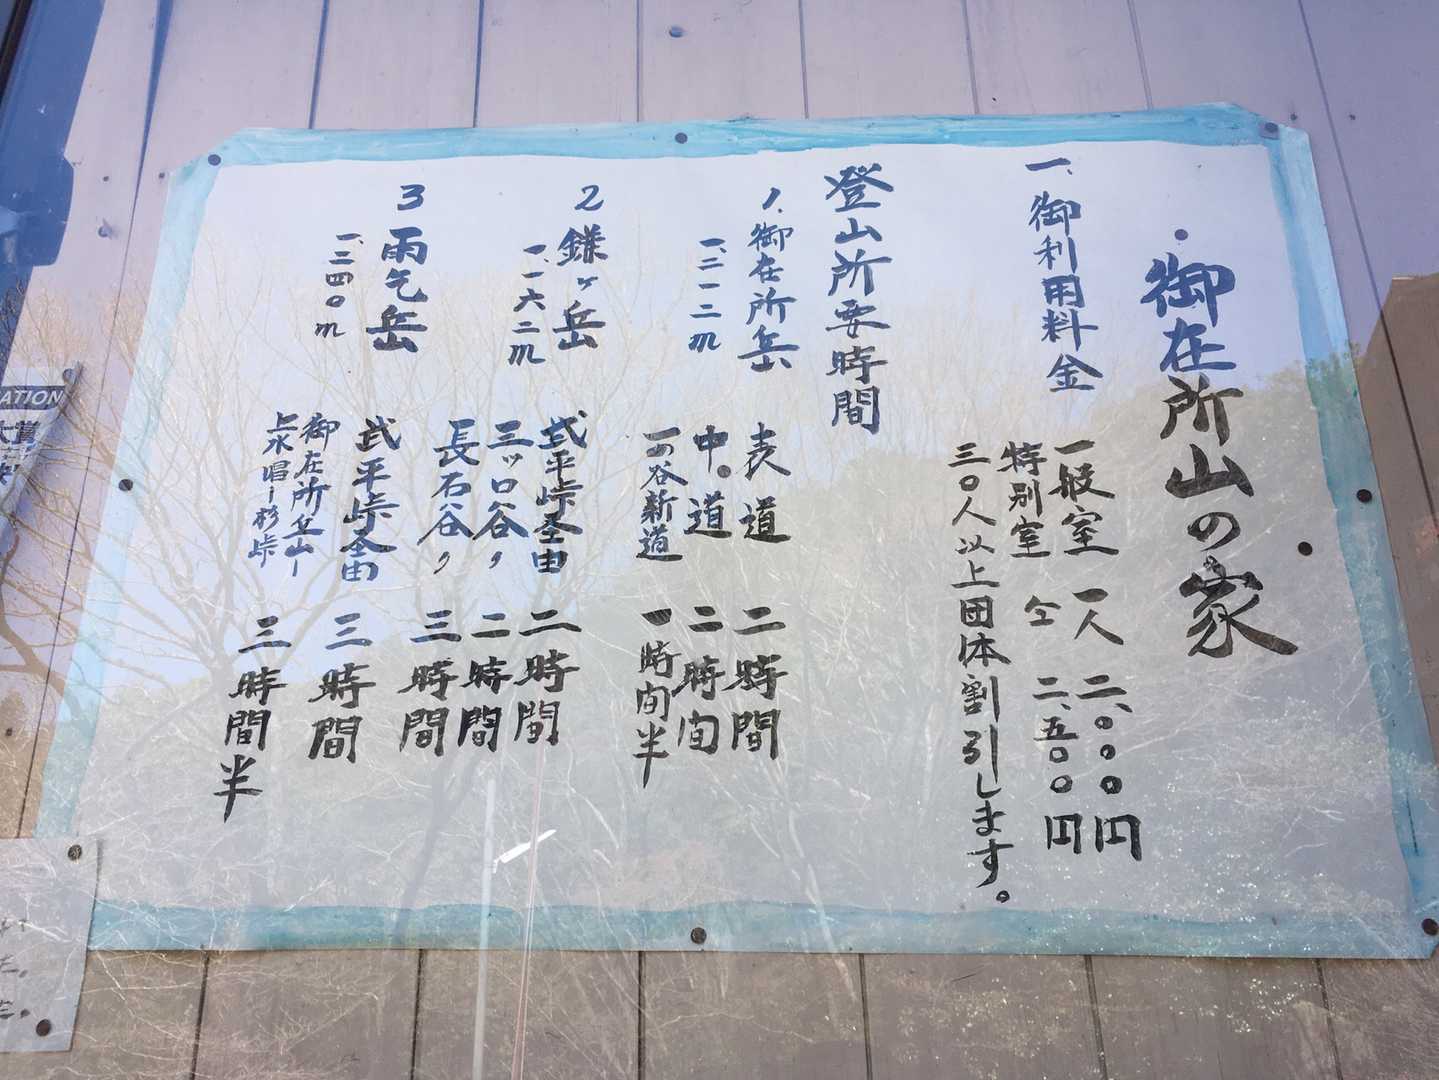 御在所山の家
一、御利用料金
一般室 一人 二、〇〇〇円
特別室 仝 二、五〇〇円
三〇人以上団体割引します。
登山所要時間
1.御在所岳
一、二一二m
表道 二時間
中道 二時間
一の谷新道 一時間半
2 鎌ヶ岳
一、一六二m
武平峠圣由 二時間
三ツ口谷〃 二時間
長石谷〃 三時間
3 雨乞岳
一、二四〇m
武平峠圣由 三時間
御在所岳山ー
上水唱ー杉峠 三時間半
ATION
大賞